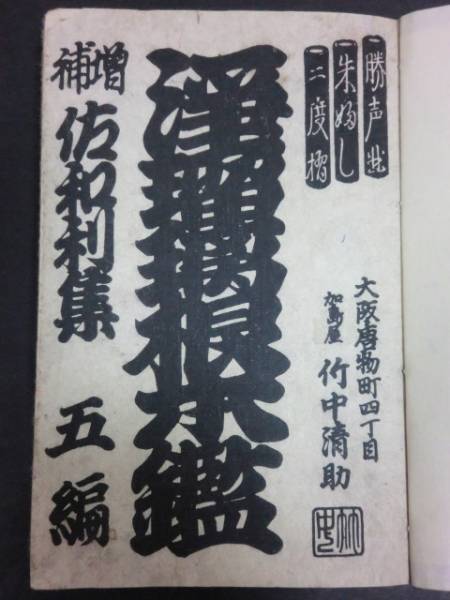 朱ぬし
二度摺
大阪唐物町四丁目
加島屋 竹中清助
浄瑠璃根本鑑
増補
佐和利集 五編